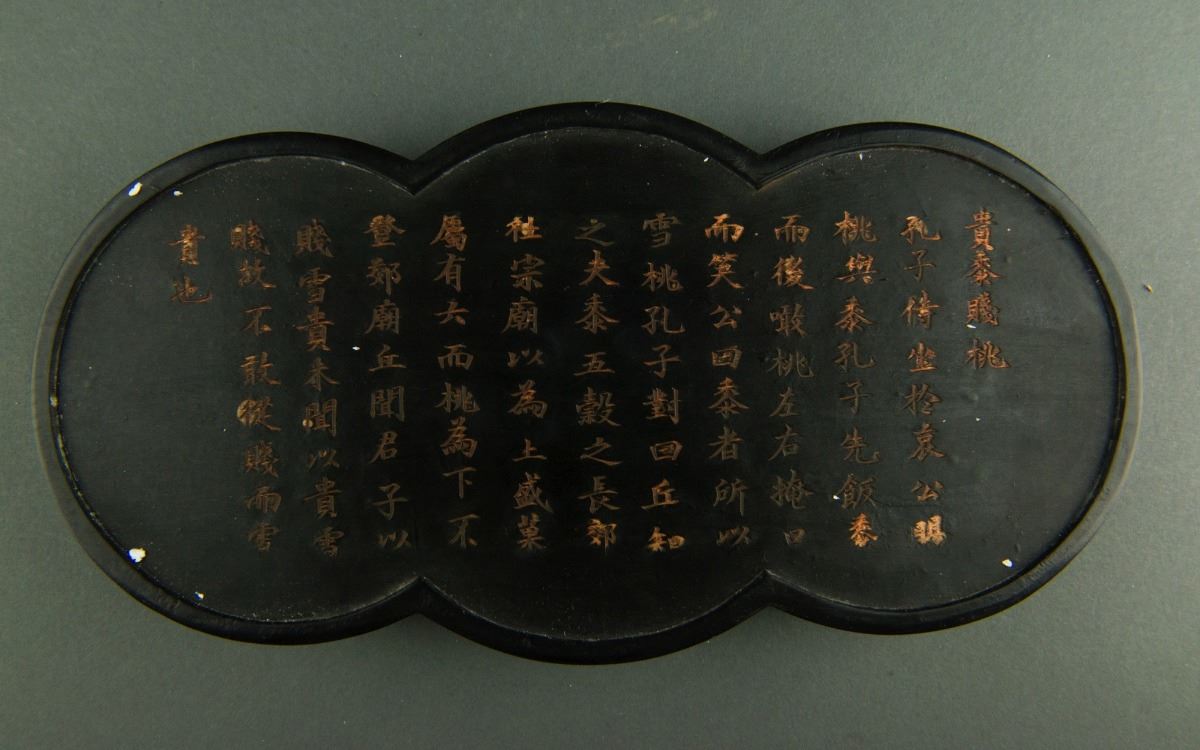 貴黍賤桃
孔子侍坐於哀公賜
桃與黍孔子先飯黍
而後噉桃左右掩口
而笑公曰黍者所以
雪桃孔子對曰丘知
之夫黍五穀之長郊
社宗廟以為上盛菓
屬有六而桃為下不
登郊廟丘聞君子以
賤雪貴未聞以貴雪
賤故不敢從賤而雪
貴也